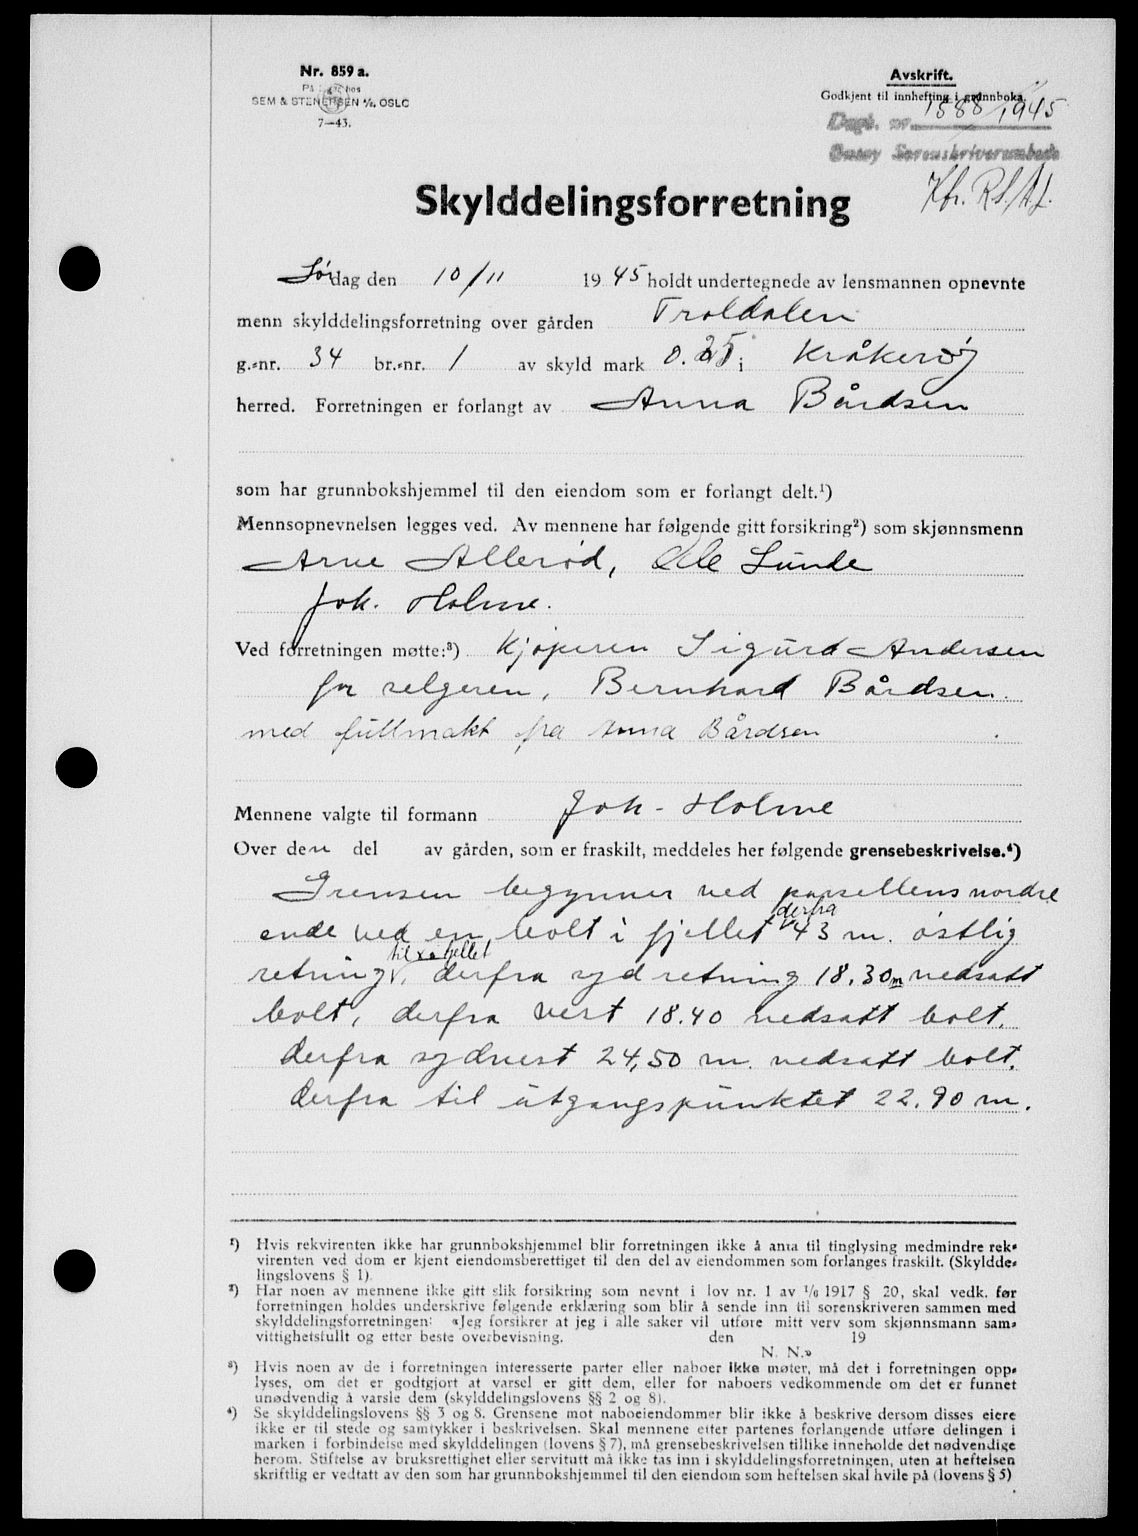 Nr. 859 a.
På lager hos
SEM & STENERSEN A/S, OSLO
7—43.
Avskrift.
Godkjent til innhefting i grunnboka.
Dagb. nr. 1888/1945
Onsøy Sorenskriverembede
Kfr. RS/AJ.
Skylddelingsforretning
Lørdag den 10/11 1945 holdt undertegnede av lensmannen opnevnte
menn skylddelingsforretning over gården Troldalen
g.-nr. 34 br.-nr. 1 av skyld mark 0.25 i Kråkerøy
herred. Forretningen er forlangt av Anna Bårdsen
som har grunnbokshjemmel til den eiendom som er forlangt delt.¹)
Mennsopnevnelsen legges ved. Av mennene har følgende gitt forsikring²) som skjønnsmenn
Arne Allerød, Ole Lunde
Joh. Holme.
Ved forretningen møtte:³) Kjøperen Sigurd Andersen
for selgeren, Bernhard Bårdsen.
med fullmakt fra Anna Bårdsen
Mennene valgte til formann Joh. Holme
Over den del av gården, som er fraskilt, meddeles her følgende grensebeskrivelse.⁴)
Grensen begynner ved parsellens nordre
ende ved en bolt i fjellet derfra 43 m. østlig
retning til x i fjellet, derfra syd retning 18.30 m nedsatt
bolt, derfra vest 18.40 nedsatt bolt.
derfra sydvest 24,50 m. nedsatt bolt.
derfra til utgangspunktet 22.90 m.
¹) Hvis rekvirenten ikke har grunnbokshjemmel blir forretningen ikke å anta til tinglysing medmindre rek-
virenten ved dom er kjent eiendomsberettiget til den del av eiendommen som forlanges fraskilt. (Skyldde-
lingslovens § 1).
²) Har noen av mennene ikke gitt slik forsikring som nevnt i lov nr. 1 av 1/6 1917 § 20, skal vedk. før
forretningen holdes underskrive følgende erklæring som blir å sende inn til sorenskriveren sammen med
skylddelingsforretningen: «Jeg forsikrer at jeg i alle saker vil utføre mitt verv som skjønnsmann sam-
vittighetsfullt og etter beste overbevisning. den 19
N. N.»
³) Hvis noen av de i forretningen interesserte parter eller naboer ikke møter, må det i forretningen opp-
lyses, om det er godtgjort at varsel er gitt dem, eller for naboers vedkommende om det er funnet
unødvendig å varsle dem (skylddelingslovens §§ 2 og 8).
⁴) Se skylddelingslovens §§ 3 og 8. Grensene mot naboeiendommer blir ikke å beskrive dersom disses eiere
ikke er til stede og samtykker i beskrivelsen. Skal mennene etter partenes forlangende utføre delingen i
marken i forbindelse med skylddelingen (lovens § 7), må grensebeskrivelsen tillike inneholde det nødvendige
herom. Stiftelse av bruksrettighet eller servitutt må ikke tas inn i skylddelingsforretningen, uten at heftelsen
skriftlig er vedtatt av den som har grunnbokshjemmel til den eiendom som heftelsen skal hvile på (lovens § 5)